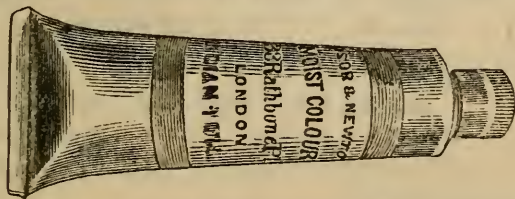 SOR & NEWTO
MOIST COLOUR
38 Rathbone P
LONDON
DIAN YEL